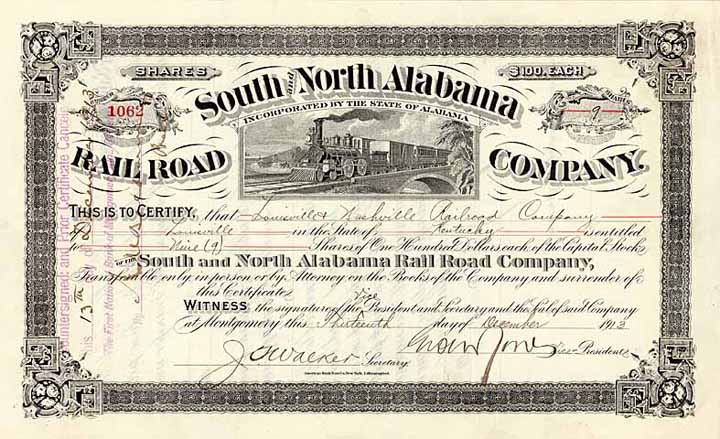 SHARES
$100. EACH
South and North Alabama
1062
9
INCORPORATED BY THE STATE OF ALABAMA
RAIL ROAD COMPANY.
THIS IS TO CERTIFY, that Louisville & Nashville Railroad Company
of Louisville in the State of Kentucky is entitled
to Nine (9) Shares of One Hundred Dollars each of the Capital Stock
OF THE South and North Alabama Rail Road Company,
Transferable only in person or by Attorney on the Books of the Company and surrender of
this Certificate.
WITNESS the signature of the Vice President and Secretary and the Seal of said Company
at Montgomery this Thirteenth day of December 1913
Secretary.
Vice President
American Bank Note Co. New York, Lithographed.
Countersigned: and Prior Certificate Cancelled
this 13th day of December 1913
The First National Bank of Montgomery